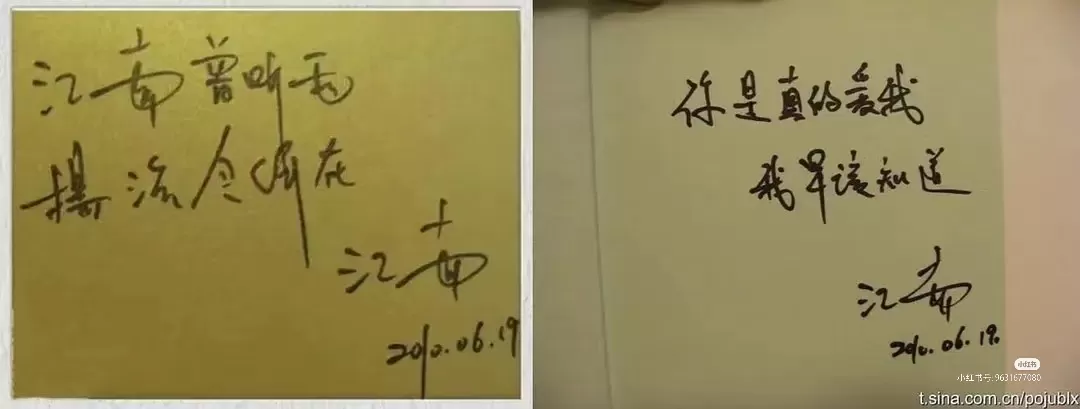 江南曾听雨
楊治今何在
江南
2010.06.19
你是真的爱我
我早该知道
江南
2010.06.19.
小红书
小红书号:9631677080
t.sina.com.cn/pojublx